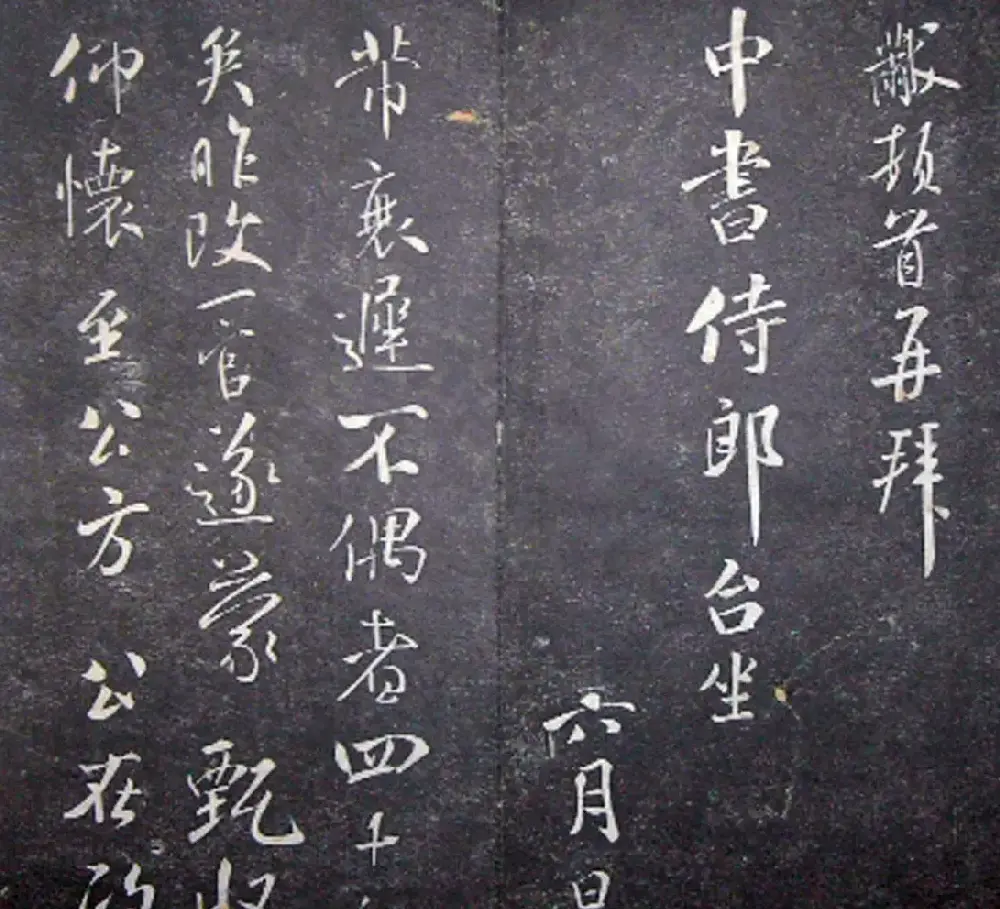 黻頓首再拜
中書侍郎台坐
六月日
黻衰遲不偶者四十
矣昨改一官遂蒙甄收
仰懷至公方公在政